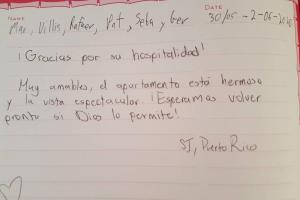 NAME
Mae, Villis, Rafaer, Pat, Seba y Ger
DATE
30/05 - 2-06-
¡Gracias por su hospitalidad!
Muy amables, el apartamento está hermoso
y la vista espectacular. ¡Esperamos volver
pronto si Dios lo permite!
SJ, Puerto Rico